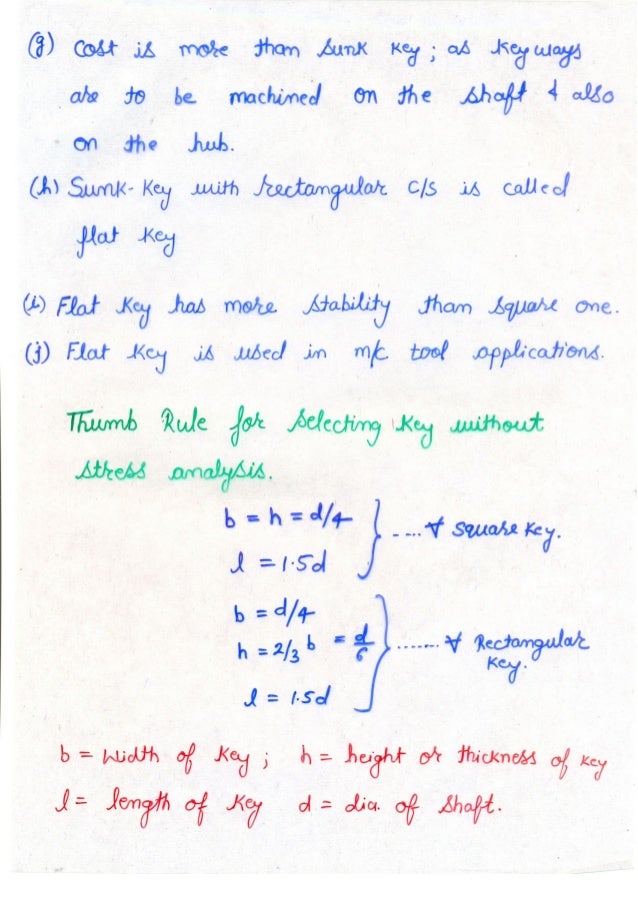 (g) Cost is more than Sunk Key ; as Keyways
are to be machined on the shaft & also
on the hub.
(h) Sunk-Key with rectangular c/s is called
flat Key
(i) Flat Key has more stability than Square one.
(j) Flat Key is used in m/c tool applications.
Thumb Rule for selecting Key without
stress analysis.
b = h = d/4
l = 1.5d } ..... ∀ Square Key.
b = d/4
h = 2/3 b = d/6 } ....... ∀ Rectangular Key.
l = 1.5d
b = Width of Key ; h = height or thickness of Key
l = length of Key d = dia. of Shaft.